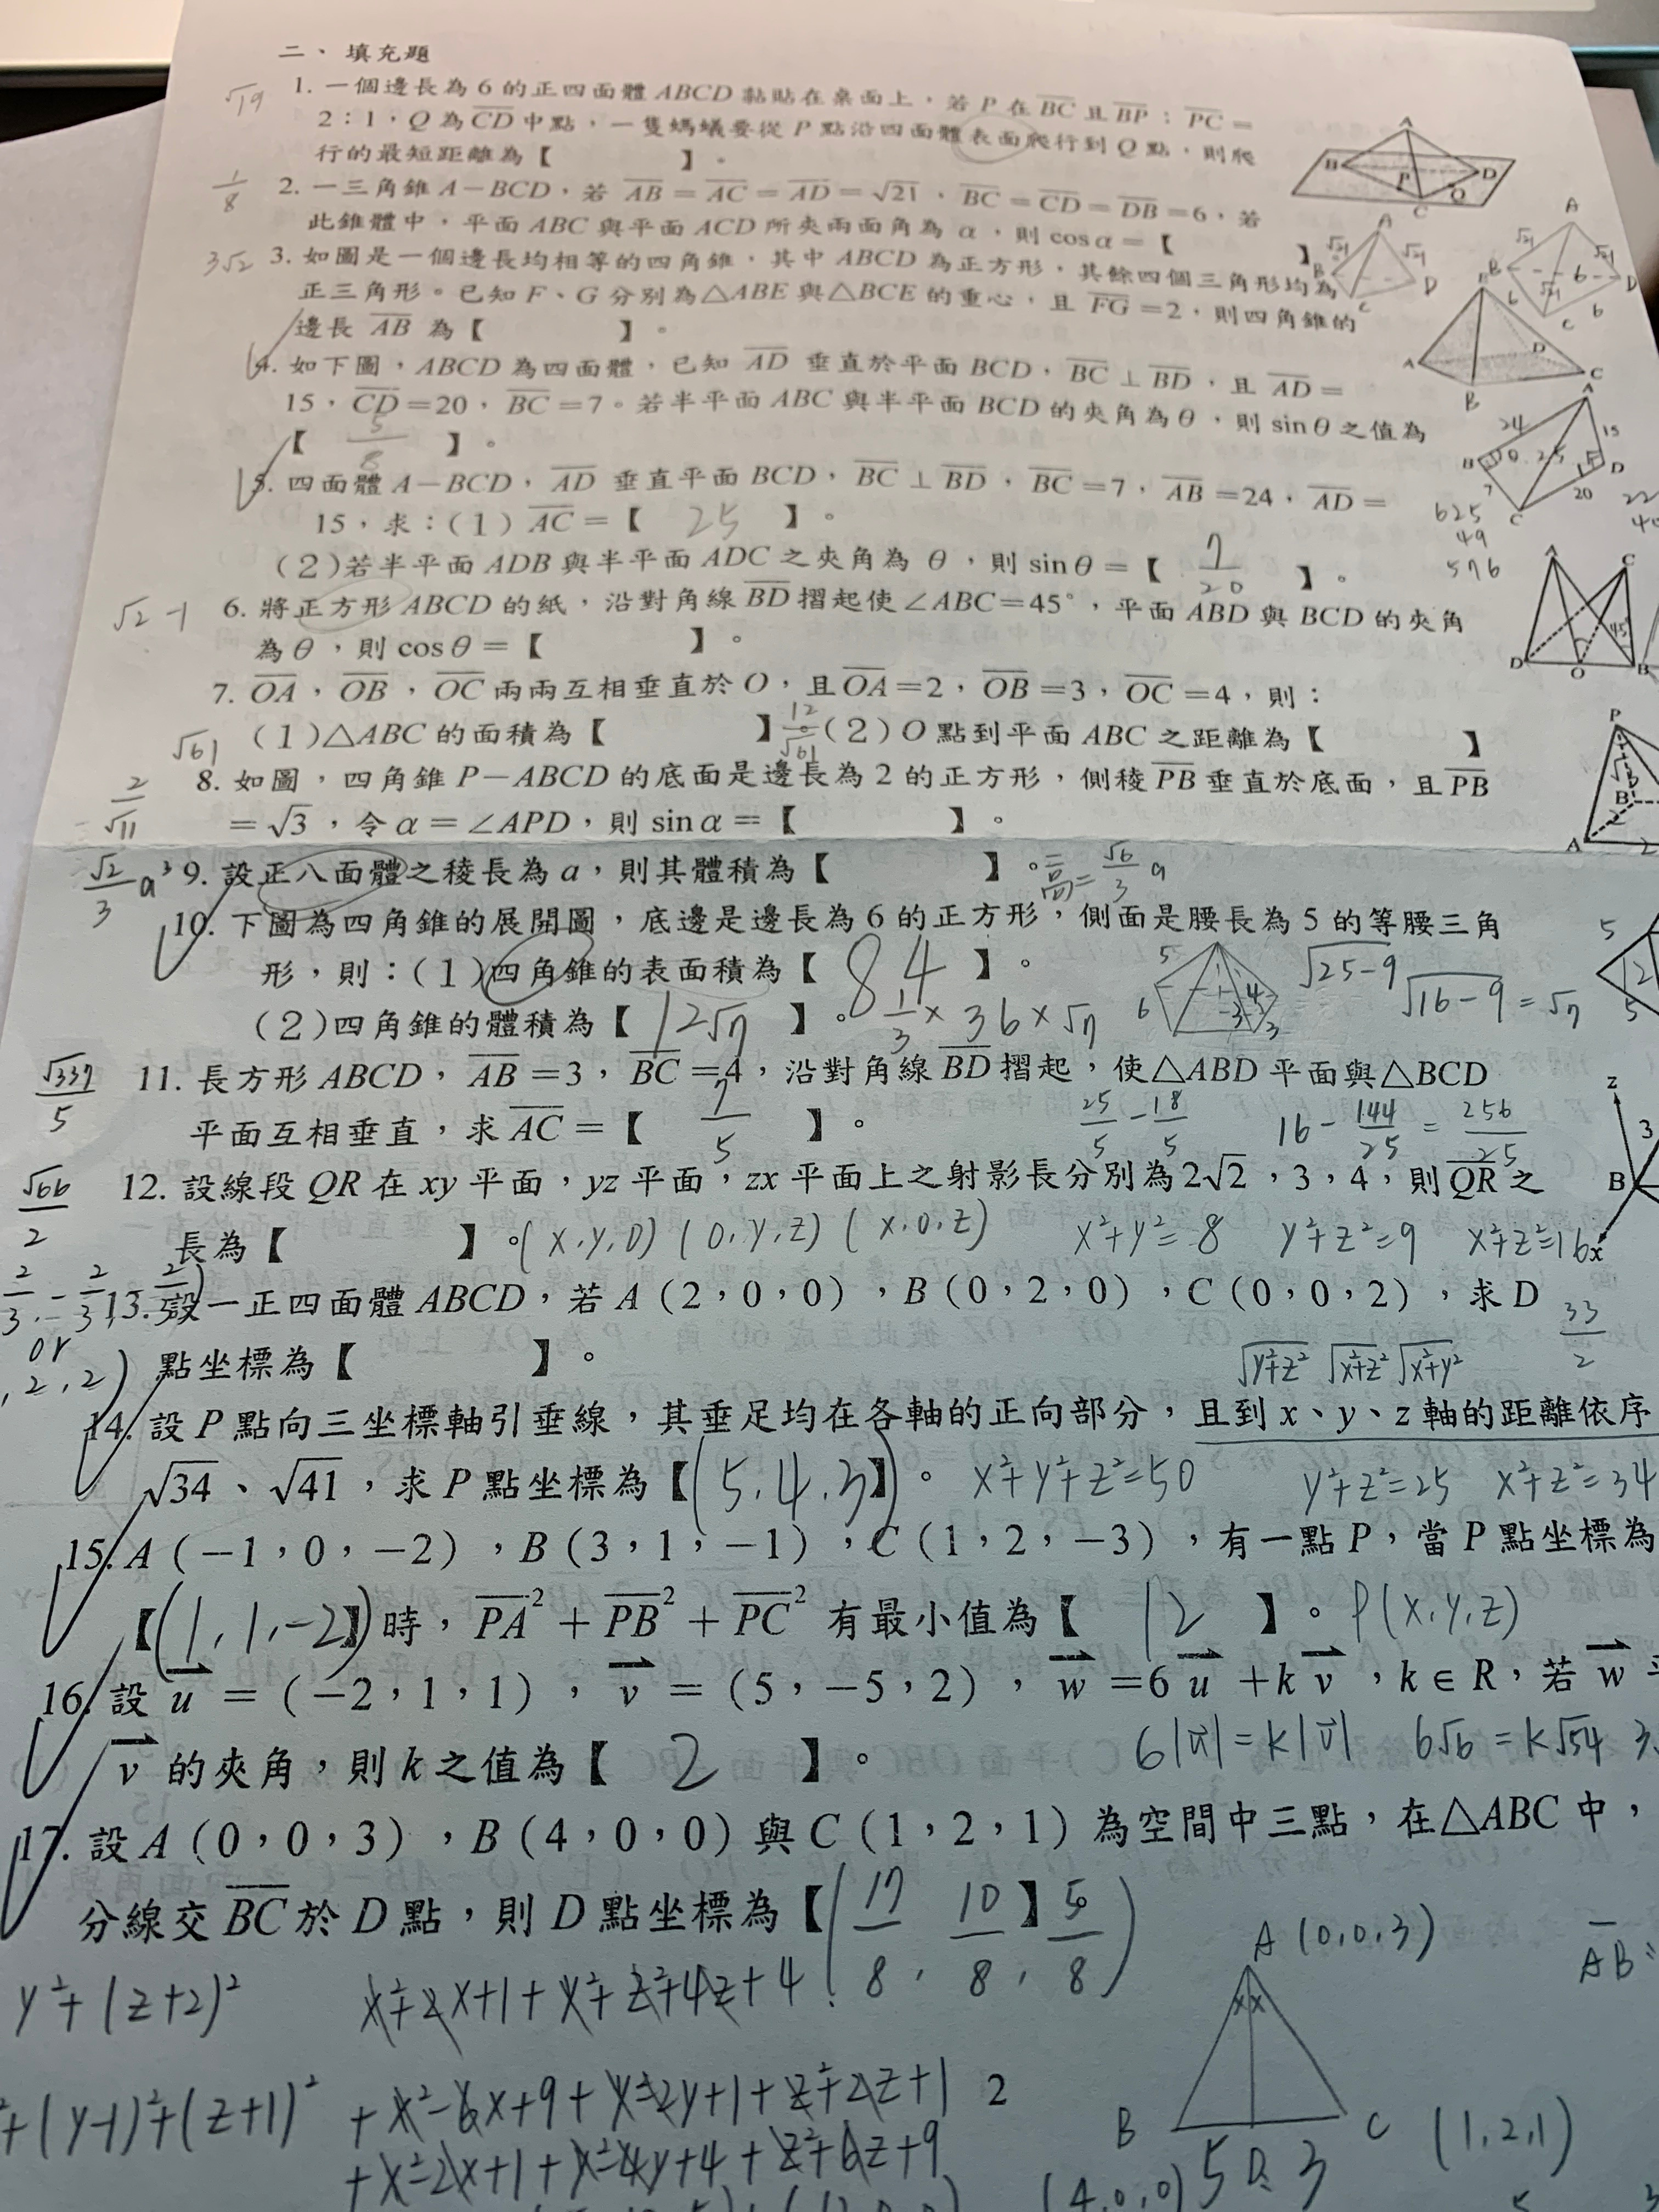 二、填充題
√19 1. 一個邊長為 6 的正四面體 ABCD 黏貼在桌面上,若 P 在 BC 且 BP:PC=
2:1,Q 為 CD 中點,一隻螞蟻要從 P 點沿四面體表面爬行到 Q 點,則爬
行的最短距離為【 】。
1/8 2. 一三角錐 A-BCD,若 AB=AC=AD=√21,BC=CD=DB=6,若
此錐體中,平面 ABC 與平面 ACD 所夾兩面角為 α,則 cosα=【 】
3√2 3. 如圖是一個邊長均相等的四角錐,其中 ABCD 為正方形,其餘四個三角形均為
正三角形。已知 F、G 分別為△ABE 與△BCE 的重心,且 FG=2,則四角錐的
邊長 AB 為【 】。
4. 如下圖,ABCD 為四面體,已知 AD 垂直於平面 BCD,BC⊥BD,且 AD=
15,CD=20,BC=7。若半平面 ABC 與半平面 BCD 的夾角為 θ,則 sinθ 之值為
【 5/8 】。
5. 四面體 A-BCD,AD 垂直平面 BCD,BC⊥BD,BC=7,AB=24,AD=
15,求:(1) AC=【 25 】。
(2)若半平面 ADB 與半平面 ADC 之夾角為 θ,則 sinθ=【 7/20 】。
625
49
576
√2-1 6. 將正方形 ABCD 的紙,沿對角線 BD 摺起使∠ABC=45°,平面 ABD 與 BCD 的夾角
為 θ,則 cosθ=【 】。
7. OA,OB,OC 兩兩互相垂直於 O,且 OA=2,OB=3,OC=4,則:
√61 (1)△ABC 的面積為【 】12/√61 (2)O 點到平面 ABC 之距離為【 】
2/√11 8. 如圖,四角錐 P-ABCD 的底面是邊長為 2 的正方形,側稜 PB 垂直於底面,且 PB
=√3,令 α=∠APD,則 sinα=【 】。
√2/3 a³ 9. 設正八面體之稜長為 a,則其體積為【 】。 高=√6/3 a
10. 下圖為四角錐的展開圖,底邊是邊長為 6 的正方形,側面是腰長為 5 的等腰三角
形,則:(1)四角錐的表面積為【 84 】。 √25-9 √16-9=√7
(2)四角錐的體積為【 12√7 】。 1/3×36×√7
√337/5 11. 長方形 ABCD,AB=3,BC=4,沿對角線 BD 摺起,使△ABD 平面與△BCD
平面互相垂直,求 AC=【 7/5 】。 25/5-18/5 16-144/25=256/25
√66/2 12. 設線段 QR 在 xy 平面,yz 平面,zx 平面上之射影長分別為 2√2,3,4,則 QR 之
長為【 】。(x,y,0) (0,y,z) (x,0,z) x²+y²=8 y²+z²=9 x²+z²=16
13. 設一正四面體 ABCD,若 A(2,0,0),B(0,2,0),C(0,0,2),求 D
33/2
or
,2,2) 點坐標為【 】。
√y²+z² √x²+z² √x²+y²
14. 設 P 點向三坐標軸引垂線,其垂足均在各軸的正向部分,且到 x、y、z 軸的距離依序
√34、√41,求 P 點坐標為【(5,4,3)】。 x²+y²+z²=50 y²+z²=25 x²+z²=34
15. A(-1,0,-2),B(3,1,-1),C(1,2,-3),有一點 P,當 P 點坐標為
【(1,1,-2)】時,PA²+PB²+PC² 有最小值為【 12 】。 P(x,y,z)
16. 設 u=(-2,1,1),v=(5,-5,2),w=6u+kv,k∈R,若 w
v 的夾角,則 k 之值為【 2 】。 6|u|=k|v| 6√6=k√54
17. 設 A(0,0,3),B(4,0,0)與 C(1,2,1)為空間中三點,在△ABC 中,
分線交 BC 於 D 點,則 D 點坐標為【(17/8, 10/8, 5/8)】
A(0,0,3)
AB
y²+(z+2)² x²+2x+1+y²+z²+4z+4
+(y-1)²+(z+1)² +x²-6x+9+y²-2y+1+z²+2z+1
2
B C (1,2,1)
+x²-2x+1+y²-4y+4+z²+6z+9
(4,0,0) 5 D 3